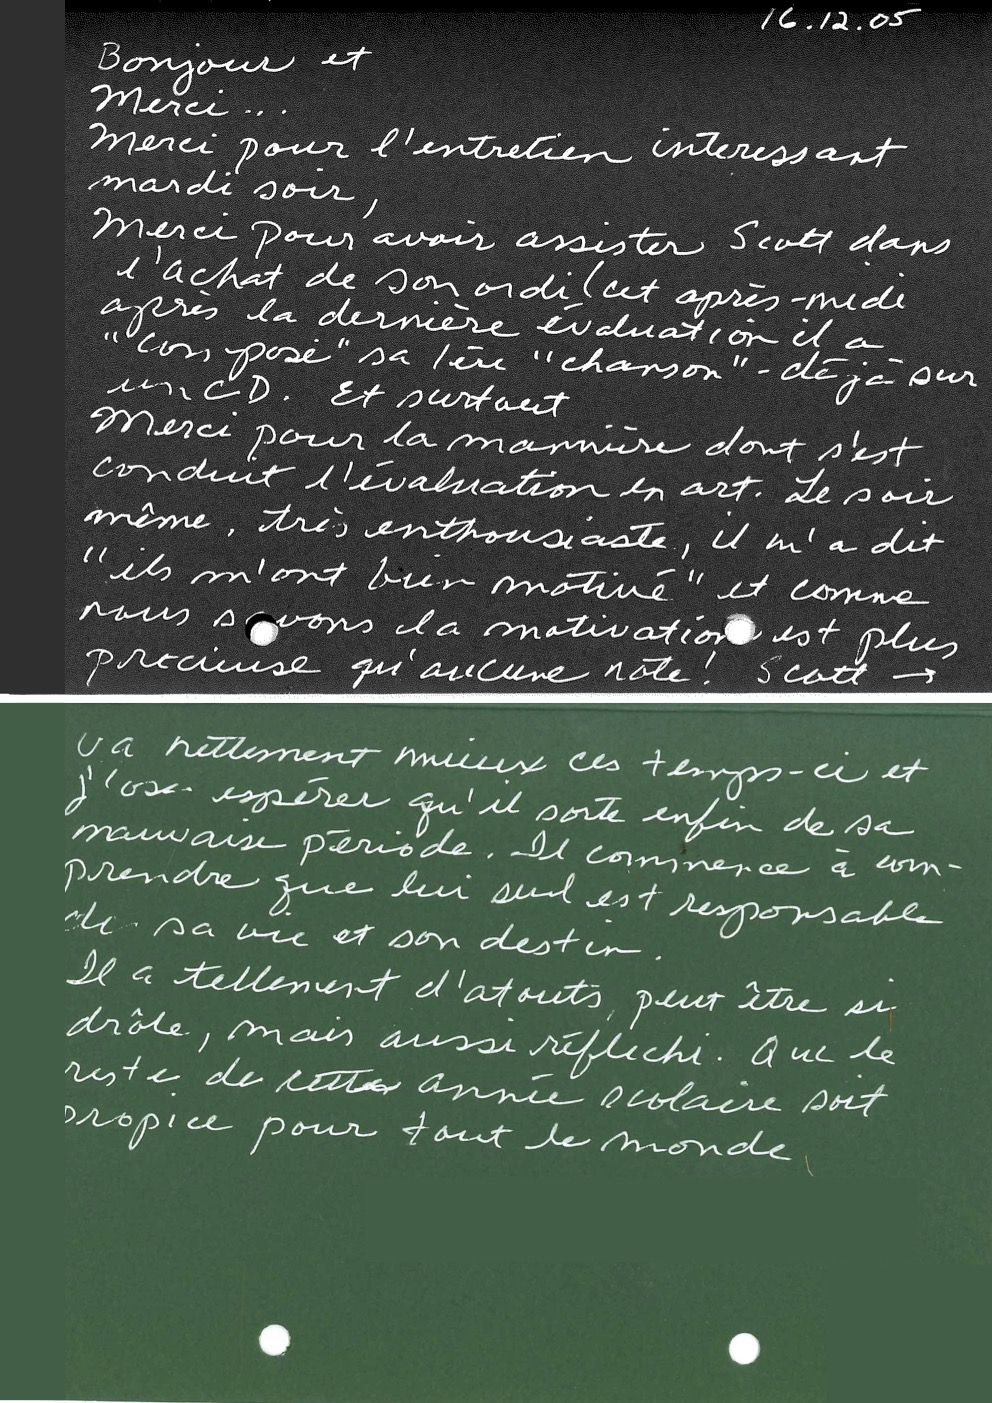 16.12.05
Bonjour et
Merci...
Merci pour l'entretien interessant
mardi soir,
Merci pour avoir assister Scott dans
l'achat de son ordi (cet après-midi
après la dernière évaluation il a
"composé" sa 1ère "chanson" - déjà sur
un CD. Et surtout
Merci pour la mannière dont s'est
conduit l'évaluation en art. Le soir
même, très enthousiaste, il m'a dit
"ils m'ont bien motivé" et comme
nous savons la motivation est plus
precieuse qu'aucune note! Scott →
va nettement mieux ces temps-ci et
j'ose espérer qu'il sorte enfin de sa
mauvaise période. Il commence à com-
prendre que lui seul est responsable
de sa vie et son destin.
Il a tellement d'atouts, peut être si
drôle, mais aussi réfléchi. Que le
reste de cette année scolaire soit
propice pour tout le monde